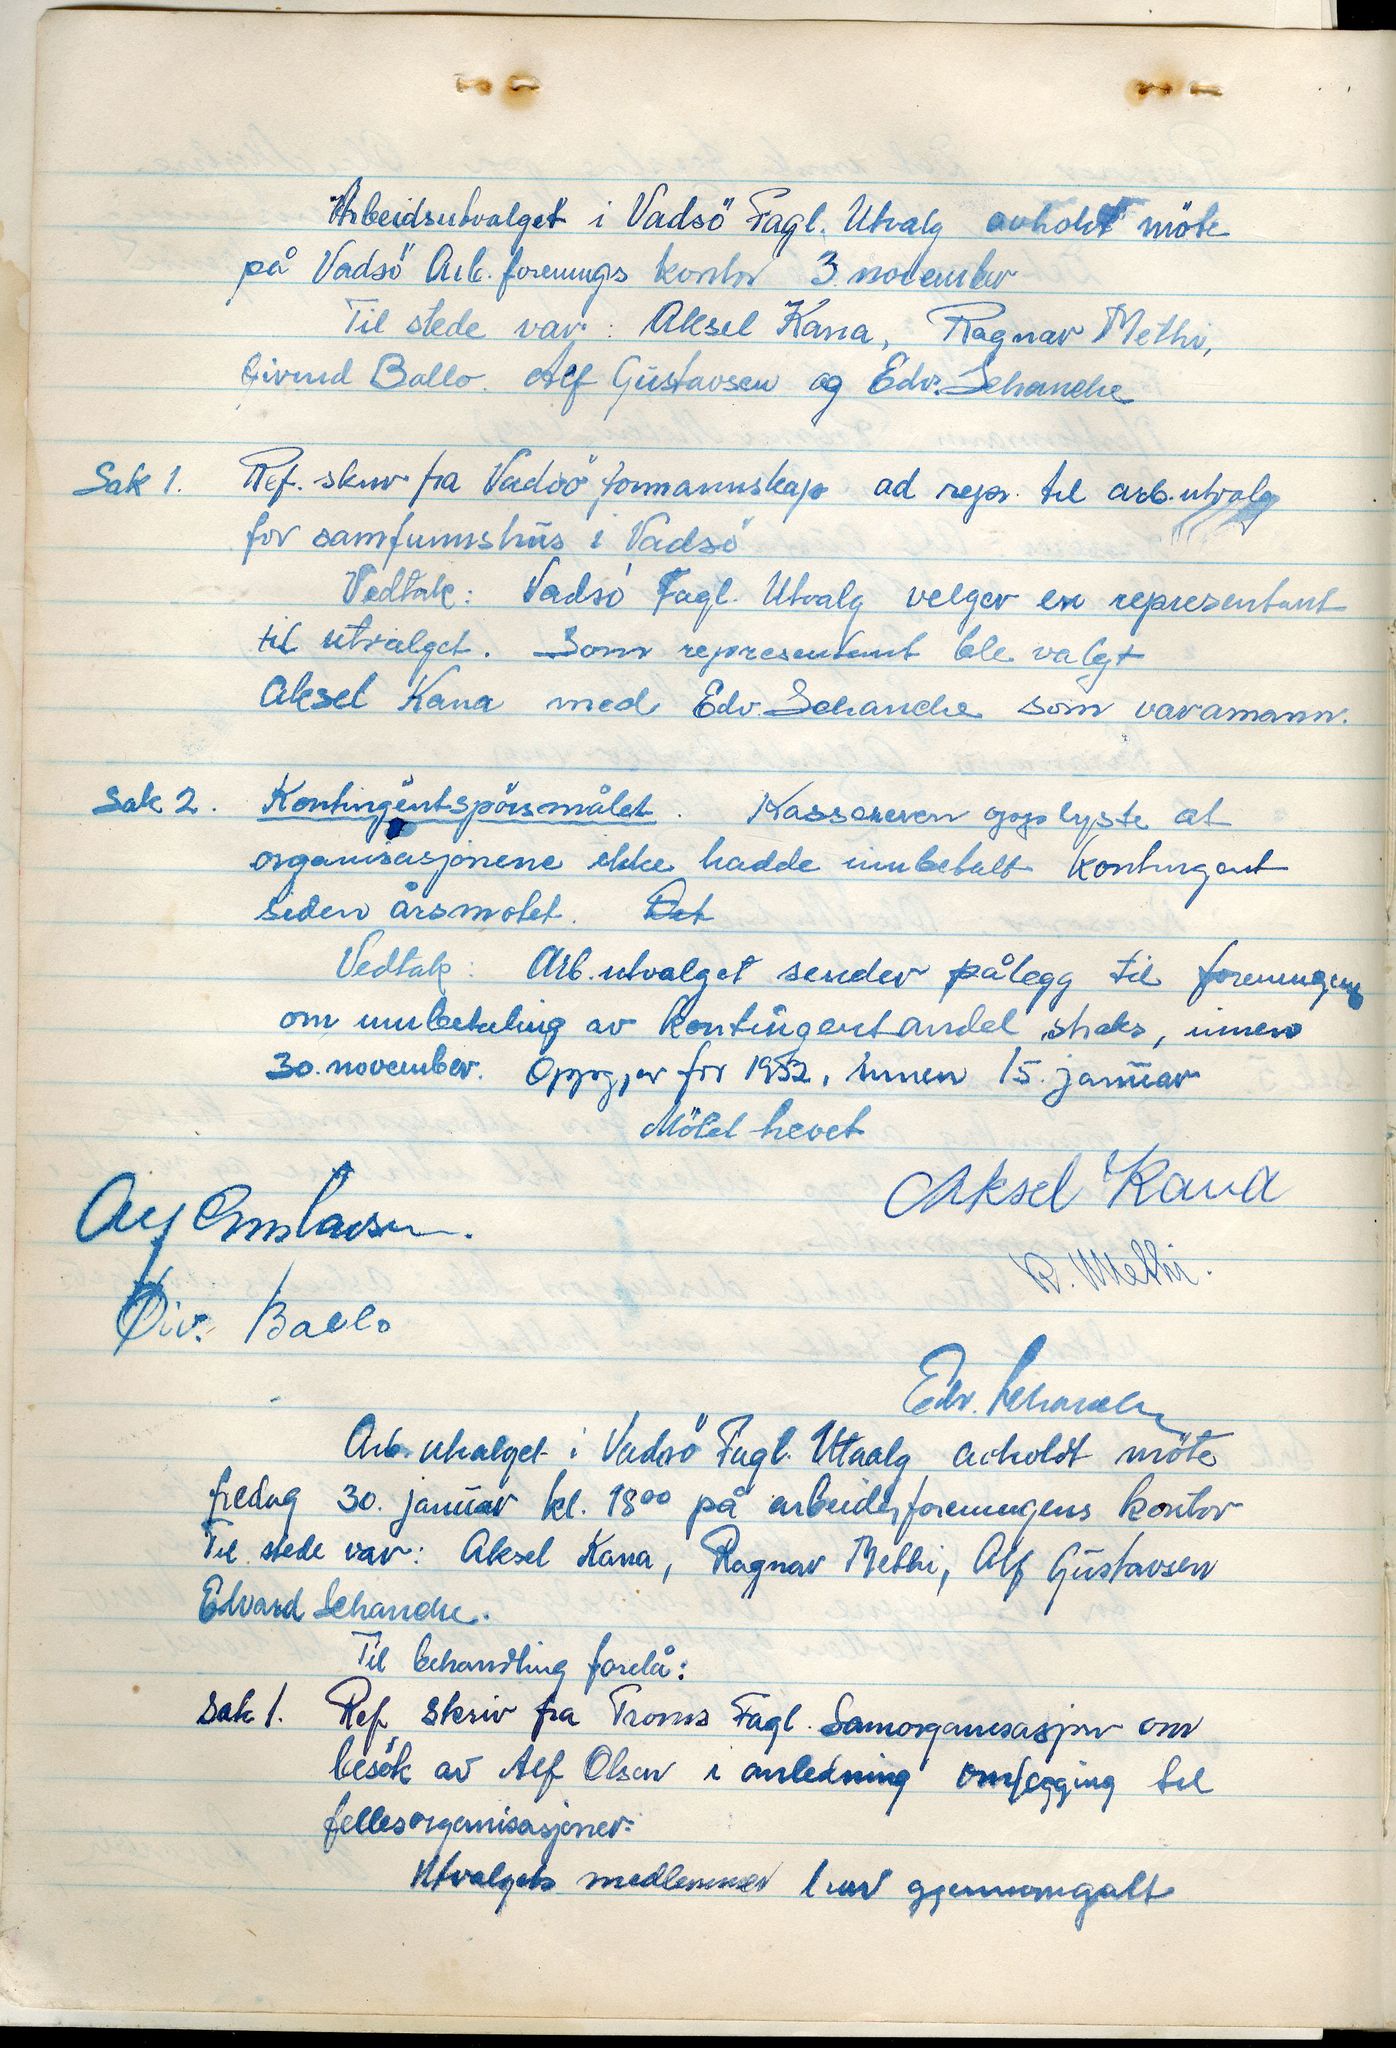 Arbeidsutvalget i Vadsö Fagl. Utvalg avholdt möte
på Vadsö Arb. forenings kontor 3 november
Til stede var: Aksel Kana, Ragnar Methi,
Eivind Ballo. Alf Gustavsen og Edv. Schanche
Sak 1. Ref. skriv fra Vadsö formannskap ad repr. til arb.utvalg
for samfunnshus i Vadsö
Vedtak: Vadsö Fagl. Utvalg velger en representant
til utvalget. Som representant ble valgt
Aksel Kana med Edv. Schanche som varamann.
Sak 2. Kontingentspörsmålet. Kassereren opplyste at
organisasjonene ikke hadde innbetalt kontingent
siden årsmötet. Det
Vedtak: Arb.utvalget sender pålegg til foreningene
om innbetaling av kontingentandel straks, innen
30. november. Oppgjør for 1952, innen 15. januar
Mötet hevet
Aksel Kana
Alf Gustavsen.
R. Methi.
Øiv. Ballo
Edv. Schanche
Arb. utvalget i Vadsö Fagl. Utvalg avholdt möte
fredag 30. januar kl. 18⁰⁰ på arbeiderforeningens kontor
Til stede var: Aksel Kana, Ragnar Methi, Alf Gustavsen
Edvard Schanche.
Til behandling forelå:
Sak 1. Ref. skriv fra Troms Fagl. Samorganisasjon om
besök av Alf Olsen i anledning omlegging til
fellesorganisasjoner.
Utvalgets medlemmer har gjennomgått